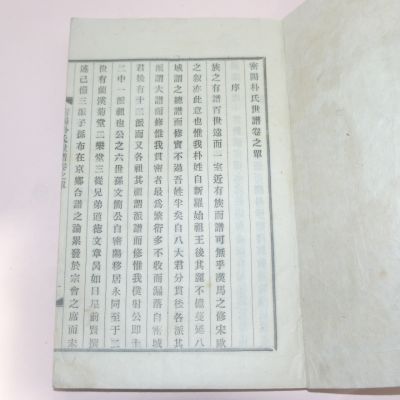 密陽朴氏世譜卷之單
序
族之有譜百世遠而一室近有族而譜可無乎漢馬之修宋歐
之叙亦此意也惟我朴姓自新羅始祖王後其麗不億蔓延八
域謂之總譜而修實不過吾姓半矣自八大君分貫後各派其
派謂大譜而修惟我貫密者最爲繁衍多不收而漏落自密城
君後有十二派而又各祖其祖謂派譜而修惟我僕射公即十
二中一派祖也公之六世孫文簡公自密陽移居永同至于二
世有蘭溪菊堂二樂堂三從兄弟道德文章昊如日星前賢撰
述已備三派子孫布在京鄉合譜之論累發於宗會之席而未